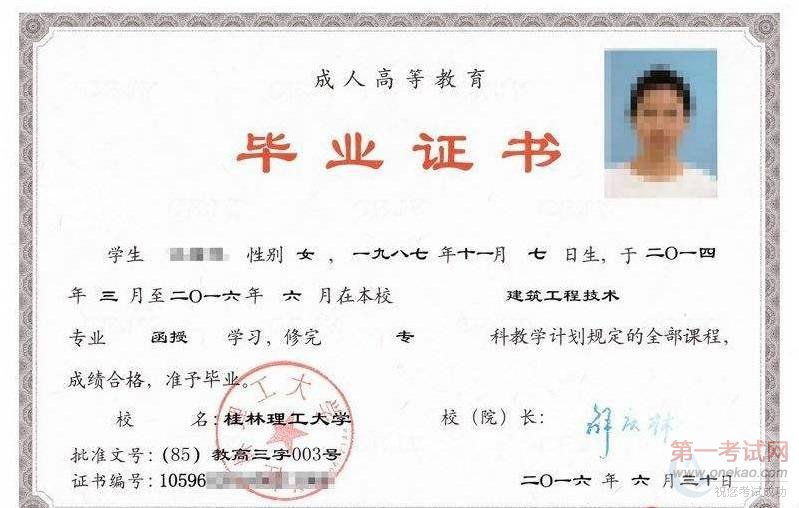 成人高等教育
毕业证书
学生 性别 女 ，一九八七 年十一月 七 日生，于二〇一四
年 三 月至二〇一六年 六 月在本校 建筑工程技术
专业 函授 学习，修完 专 科教学计划规定的全部课程，
成绩合格，准予毕业。
校 名：桂林理工大学 校（院）长：
批准文号：(85) 教高三字003号
证书编号：10596
二〇一六 年 六 月三十日
第一考试网
www.onekao.com
祝您考试成功